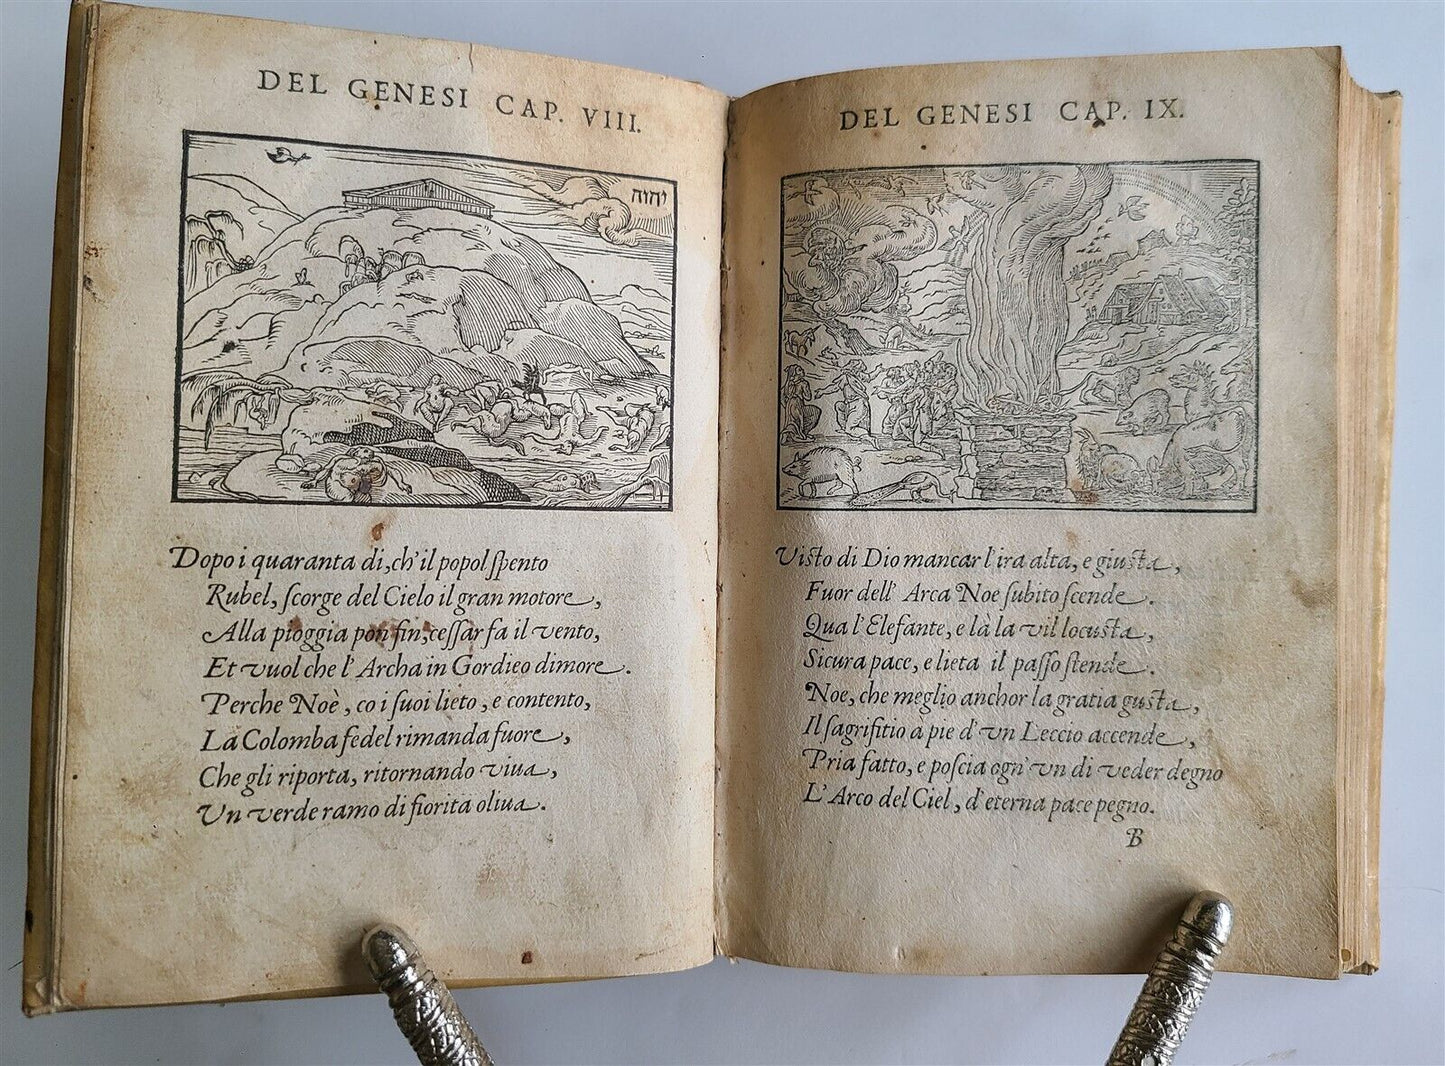 DEL GENESI CAP. VIII.
יהוה
Dopo i quaranta di, ch'il popol spento
Rubel, scorge del Cielo il gran motore,
Alla pioggia pon fin, cessar fa il vento,
Et vuol che l'Archa in Gordieo dimore.
Perche Noè, co i suoi lieto, e contento,
La Colomba fedel rimanda fuore,
Che gli riporta, ritornando viua,
Un verde ramo di fiorita oliua.
DEL GENESI CAP. IX.
Visto di Dio mancar l'ira alta, e giusta,
Fuor dell' Arca Noe subito scende.
Qua l'Elefante, e là la vil locusta,
Sicura pace, e lieta il passo stende.
Noe, che meglio anchor la gratia gusta,
Il sagrifitio à pie d'vn Leccio accende,
Pria fatto, e poscia ogn'vn di veder degno
L'Arco del Ciel, d'eterna pace pegno.
B